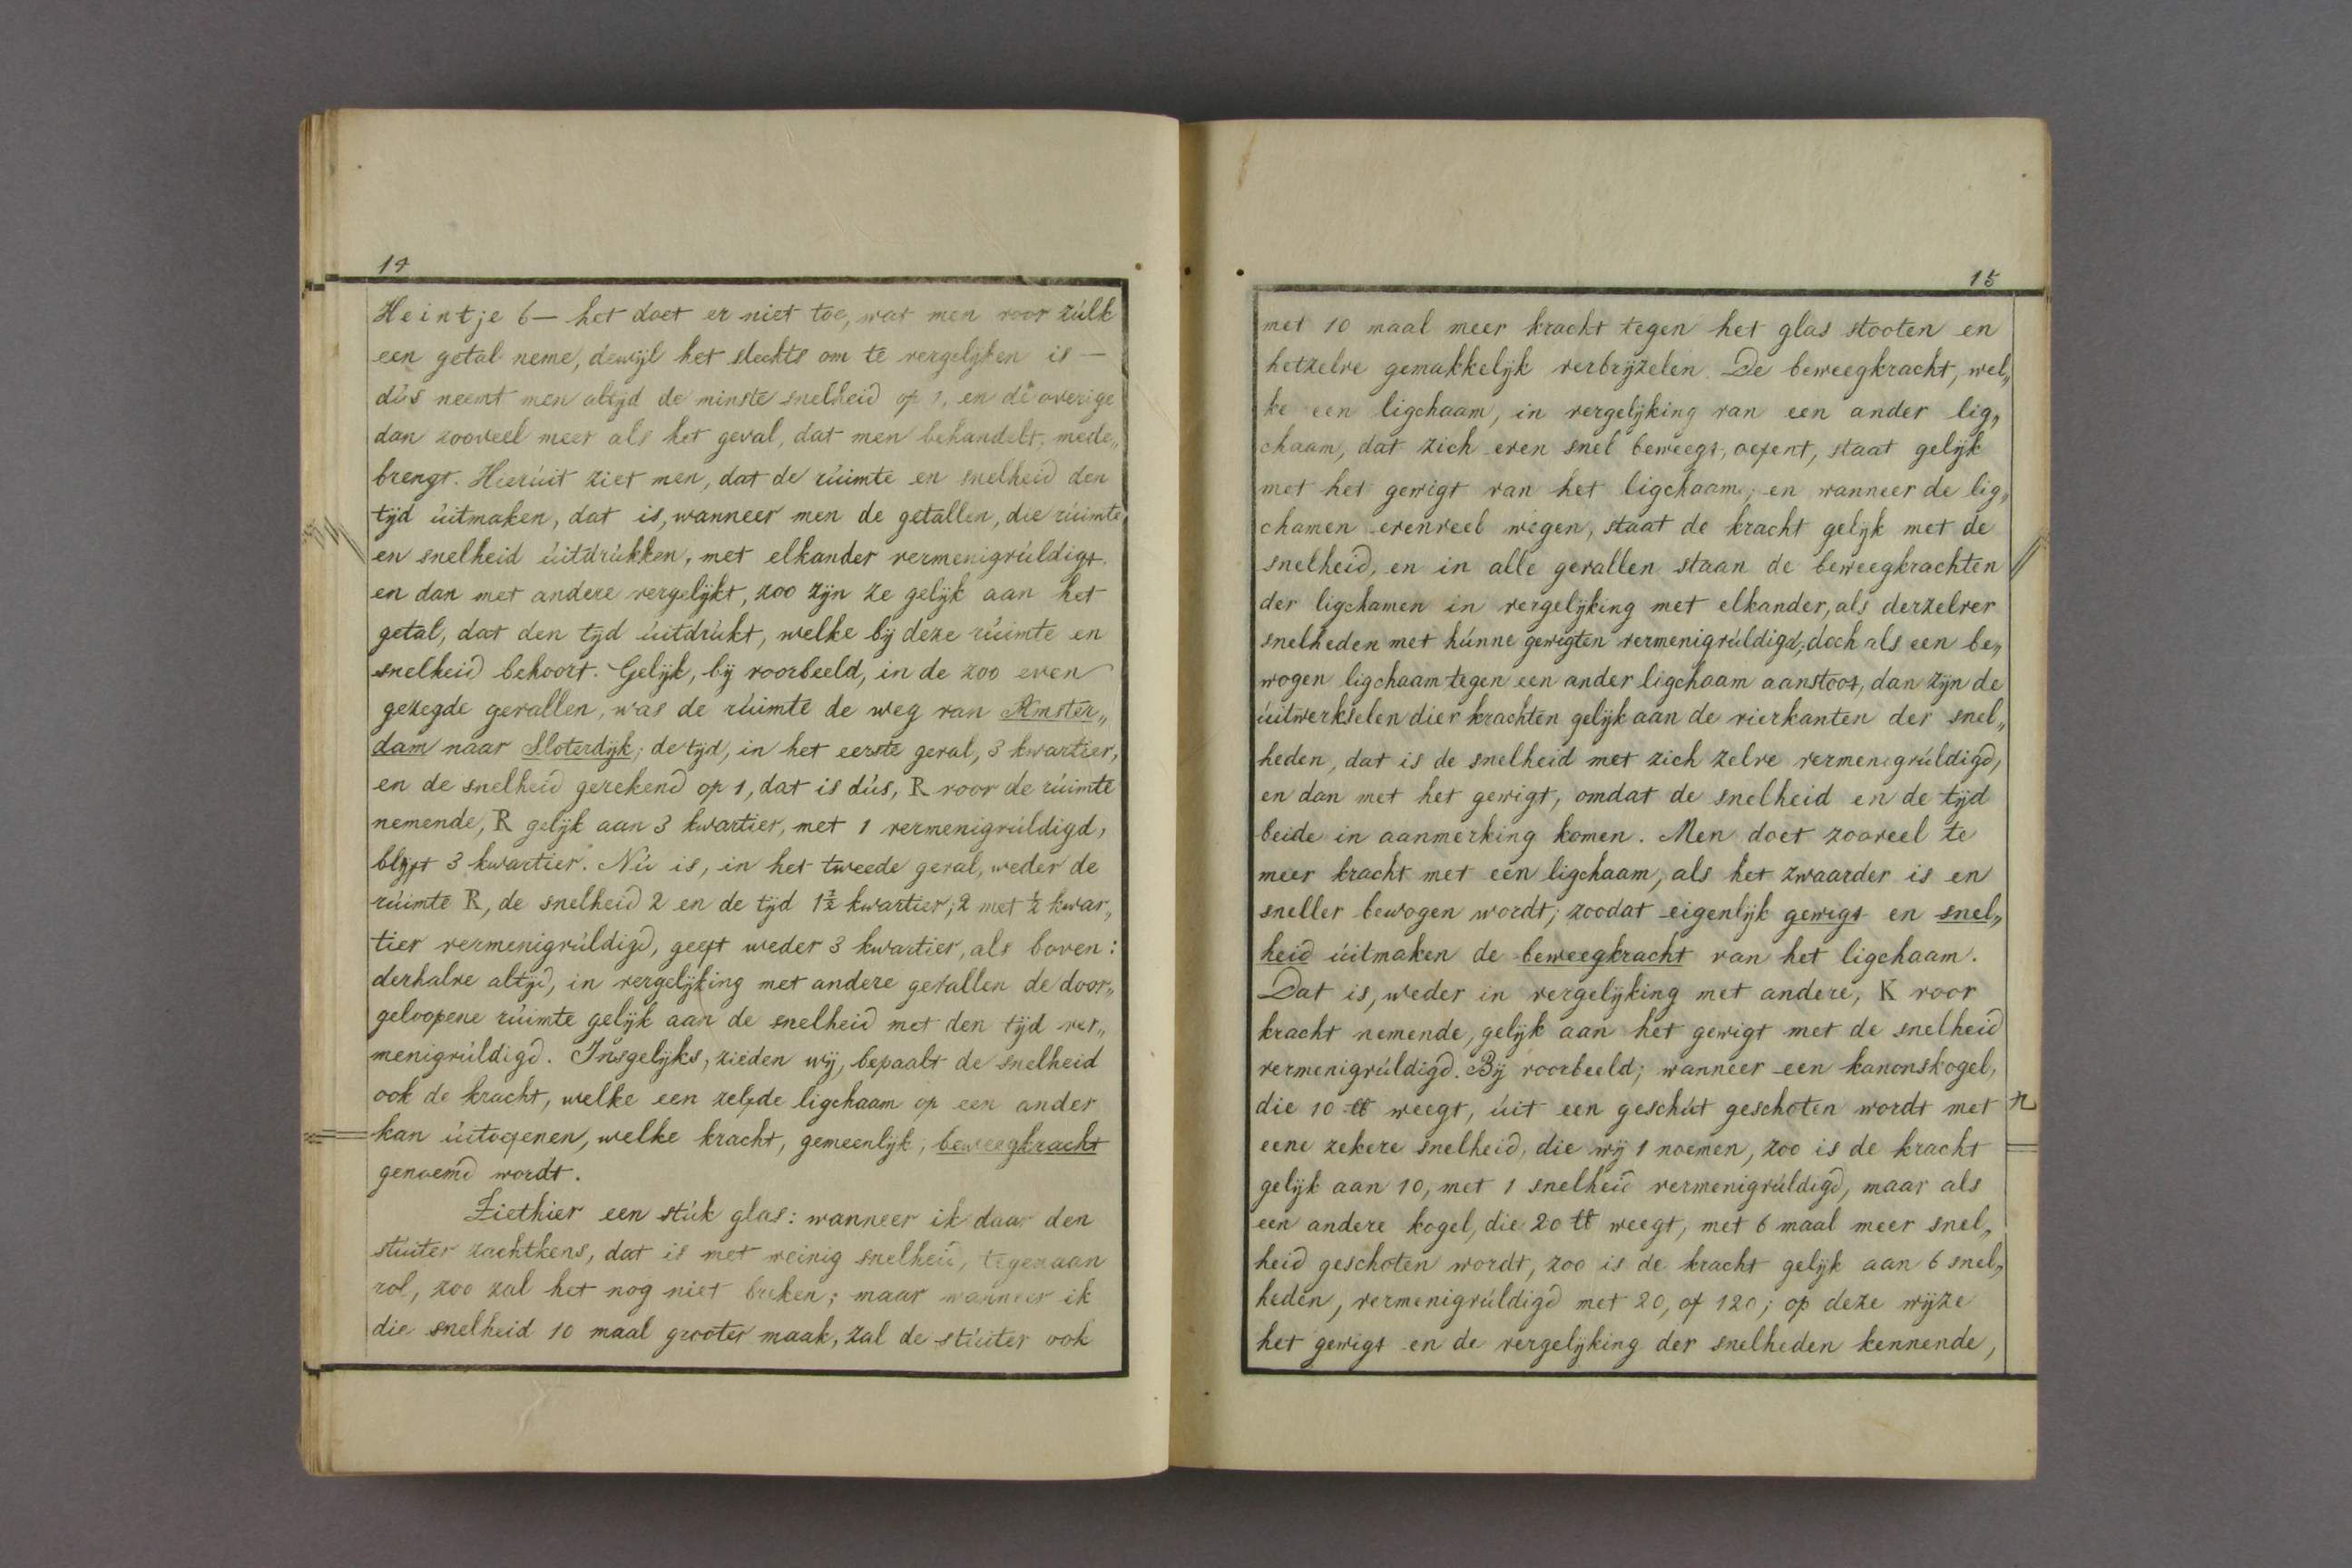 14
Heintje 6 — het doet er niet toe, wat men voor zúlk
een getal neme, dewijl het slechts om te vergelijken is —
dús neemt men altijd de minste snelheid op 1, en de overige
dan zooveel meer als het geval, dat men behandelt, mede„
brengt. Hierúit ziet men, dat de rúimte en snelheid den
tijd úitmaken, dat is, wanneer men de getallen, die rúimte
en snelheid úitdrúkken, met elkander vermenigvúldigt
en dan met andere vergelijkt, zoo zijn ze gelijk aan het
getal, dat den tijd úitdrúkt, welke bij deze rúimte en
snelheid behoort. Gelijk, bij voorbeeld, in de zoo even
gezegde gevallen, was de rúimte de weg van Amster„
dam naar Sloterdijk; de tijd, in het eerste geval, 3 kwartier,
en de snelheid gerekend op 1, dat is dús, R voor de rúimte
nemende, R gelijk aan 3 kwartier, met 1 vermenigvúldigd,
blijft 3 kwartier. Nú is, in het tweede geval, weder de
rúimte R, de snelheid 2 en de tijd 1½ kwartier; 2 met ½ kwar„
tier vermenigvúldigd, geeft weder 3 kwartier, als boven:
derhalve altijd, in vergelijking met andere gevallen de door„
geloopene rúimte gelijk aan de snelheid met den tijd ver„
menigvúldigd. Insgelijks, zieden wij, bepaalt de snelheid
ook de kracht, welke een zelfde ligchaam op een ander
kan úitoefenen, welke kracht, gemeenlijk, beweegkracht
genoemd wordt.
Ziethier een stúk glas: wanneer ik daar den
stúiter zachtkens, dat is met weinig snelheid, tegenaan
rol, zoo zal het nog niet breken; maar wanneer ik
die snelheid 10 maal grooter maak, zal de stúiter ook
15
met 10 maal meer kracht tegen het glas stooten en
hetzelve gemakkelijk verbrijzelen. De beweegkracht, wel„
ke een ligchaam, in vergelijking van een ander lig„
chaam, dat zich even snel beweegt, oefent, staat gelijk
met het gewigt van het ligchaam; en wanneer de lig„
chamen evenveel wegen, staat de kracht gelijk met de
snelheid, en in alle gevallen staan de beweegkrachten
der ligchamen in vergelijking met elkander, als derzelver
snelheden met húnne gewigten vermenigvúldigd; doch als een be„
wogen ligchaam tegen een ander ligchaam aanstoot, dan zijn de
úitwerkselen dier krachten gelijk aan de vierkanten der snel„
heden, dat is de snelheid met zich zelve vermenigvúldigd,
en dan met het gewigt, omdat de snelheid en de tijd
beide in aanmerking komen. Men doet zooveel te
meer kracht met een ligchaam, als het zwaarder is en
sneller bewogen wordt; zoodat eigenlijk gewigt en snel„
heid úitmaken de beweegkracht van het ligchaam.
Dat is, weder in vergelijking met andere, K voor
kracht nemende, gelijk aan het gewigt met de snelheid
vermenigvúldigd. Bij voorbeeld; wanneer een kanonskogel,
die 10 ℔ weegt, úit een geschút geschoten wordt met
eene zekere snelheid, die wij 1 noemen, zoo is de kracht
gelijk aan 10, met 1 snelheid vermenigvúldigd, maar als
een andere kogel, die 20 ℔ weegt, met 6 maal meer snel„
heid geschoten wordt, zoo is de kracht gelijk aan 6 snel„
heden, vermenigvúldigd met 20, of 120; op deze wijze
het gewigt en de vergelijking der snelheden kennende,